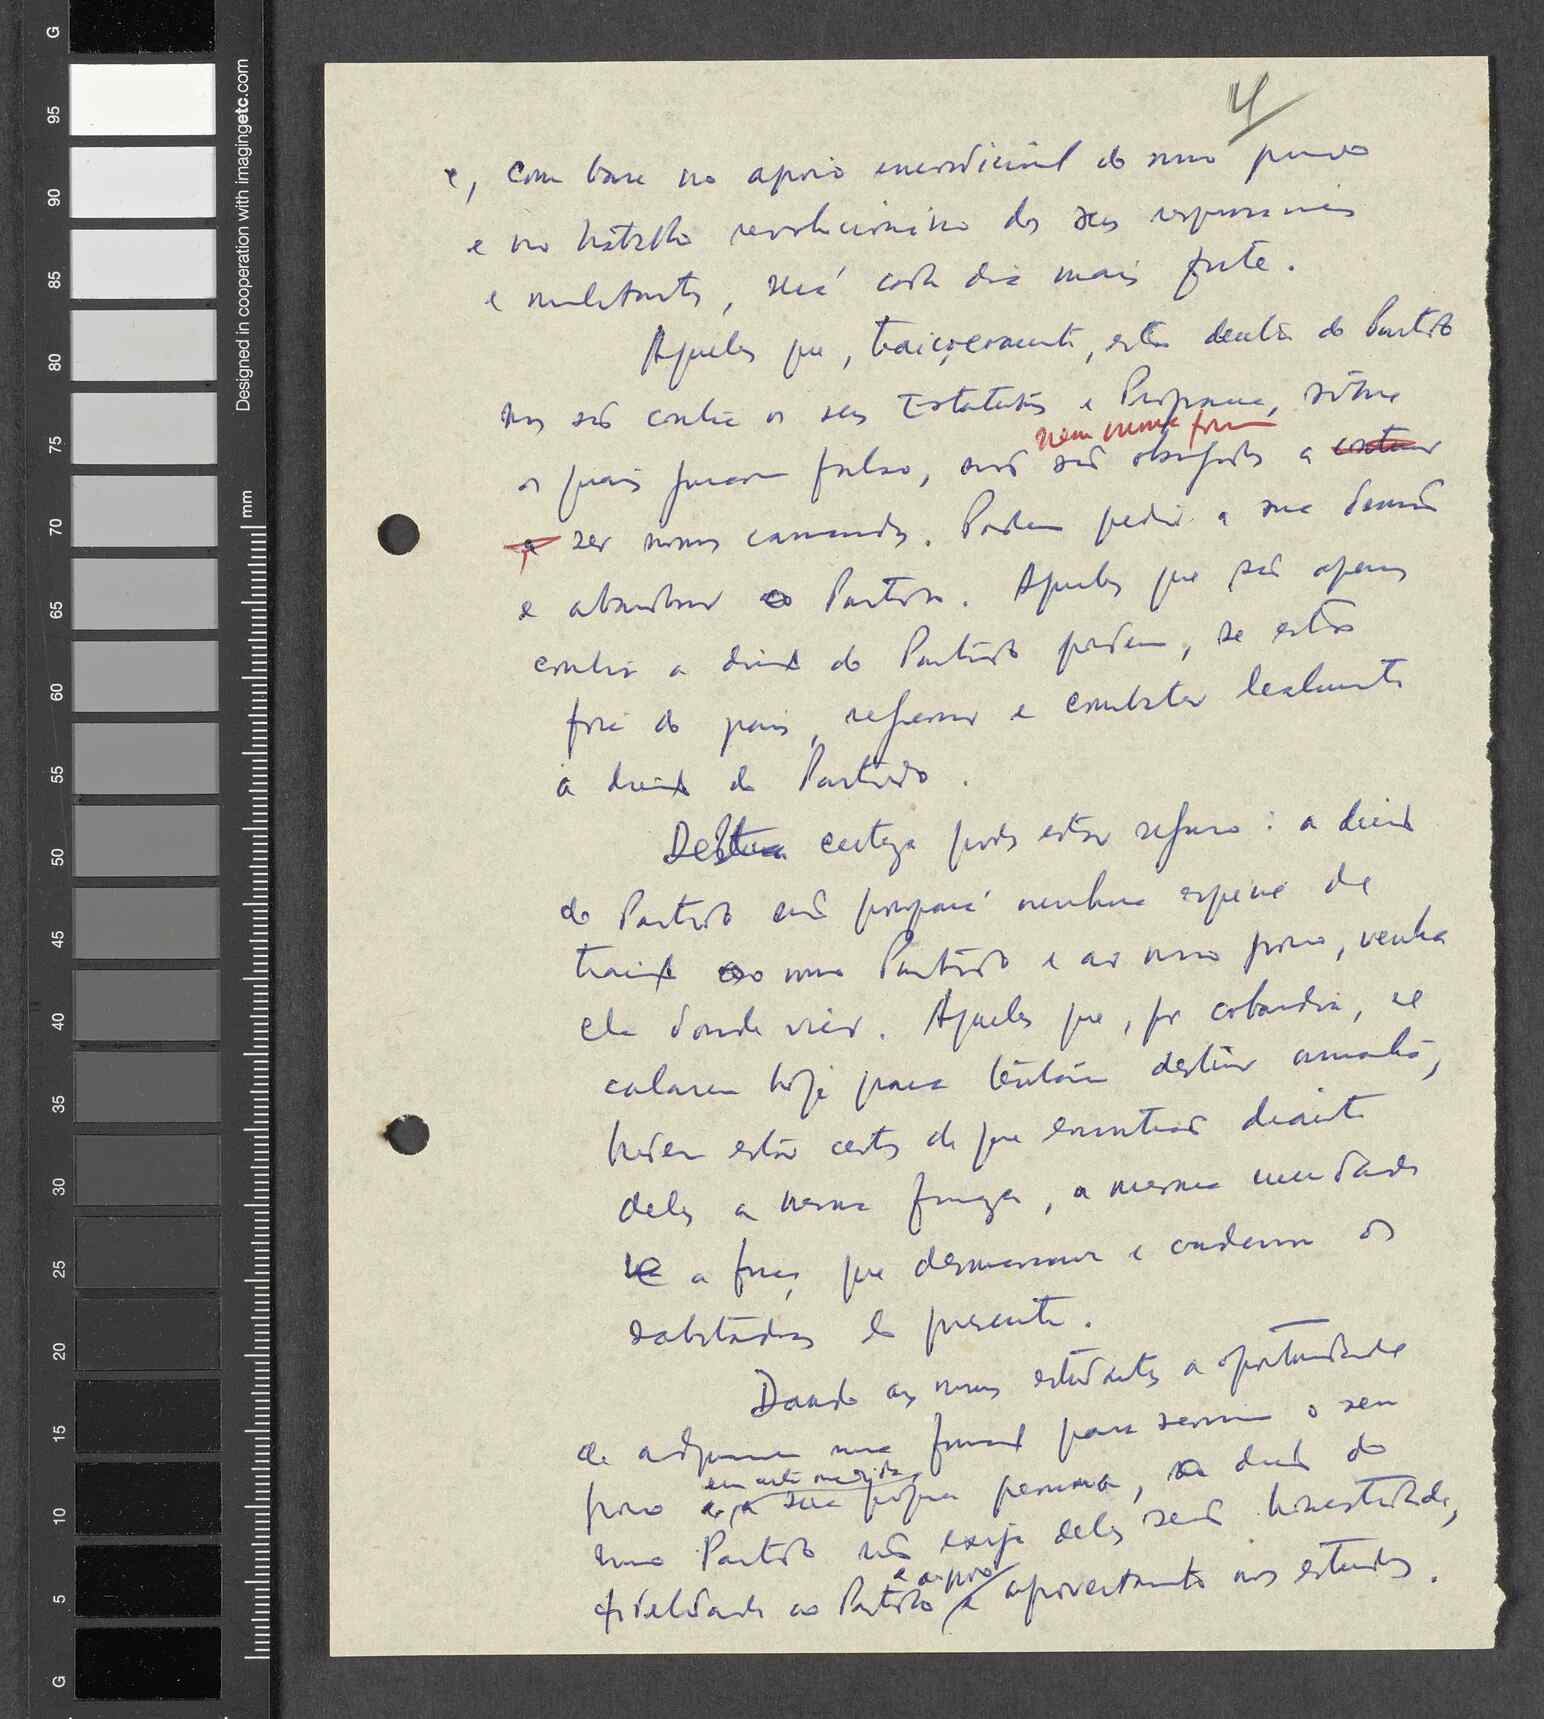 4
e, com base no apoio incondicional do nosso povo
e no trabalho revolucionário dos seus responsáveis
e militantes, será cada dia mais forte.
Aqueles que, traiçoeiramente, estão dentro do Partido
mas são contra os seus Estatutos e Programa, sobre
nem nunca foram
os quais juraram falso, não são obrigados a
a ser nossos camaradas. Podem pedir a sua demissão
e abandonar o Partido. Aqueles que são apenas
contra a direcção do Partido podem, se estão
fora do país, regressar e combater lealmente
a direcção do Partido.
Desta certeza podes estar seguro: a direcção
do Partido não poupará nenhuma espécie de
traição ao nosso Partido e ao nosso povo, venha
ela donde vier. Aqueles que, por cobardia, se
calarem hoje para tentarem destruir amanhã,
podem estar certos de que encontrarão diante
deles a mesma firmeza, a mesma
a força que desmascara e condena os
sabotadores do presente.
Dando aos nossos estudantes a oportunidade
de adquirirem uma formação para servirem o seu
em certa medida
povo e, a sua própria pessoa, a direcção do
nosso Partido não exige deles senão honestidade,
e ao povo
fidelidade ao Partido e aproveitamento nos estudos.
G
95
90
85
80
75
70
65
60
55
50
45
40
35
30
25
20
15
10
5
G
Designed in cooperation with imagingetc.com
mm